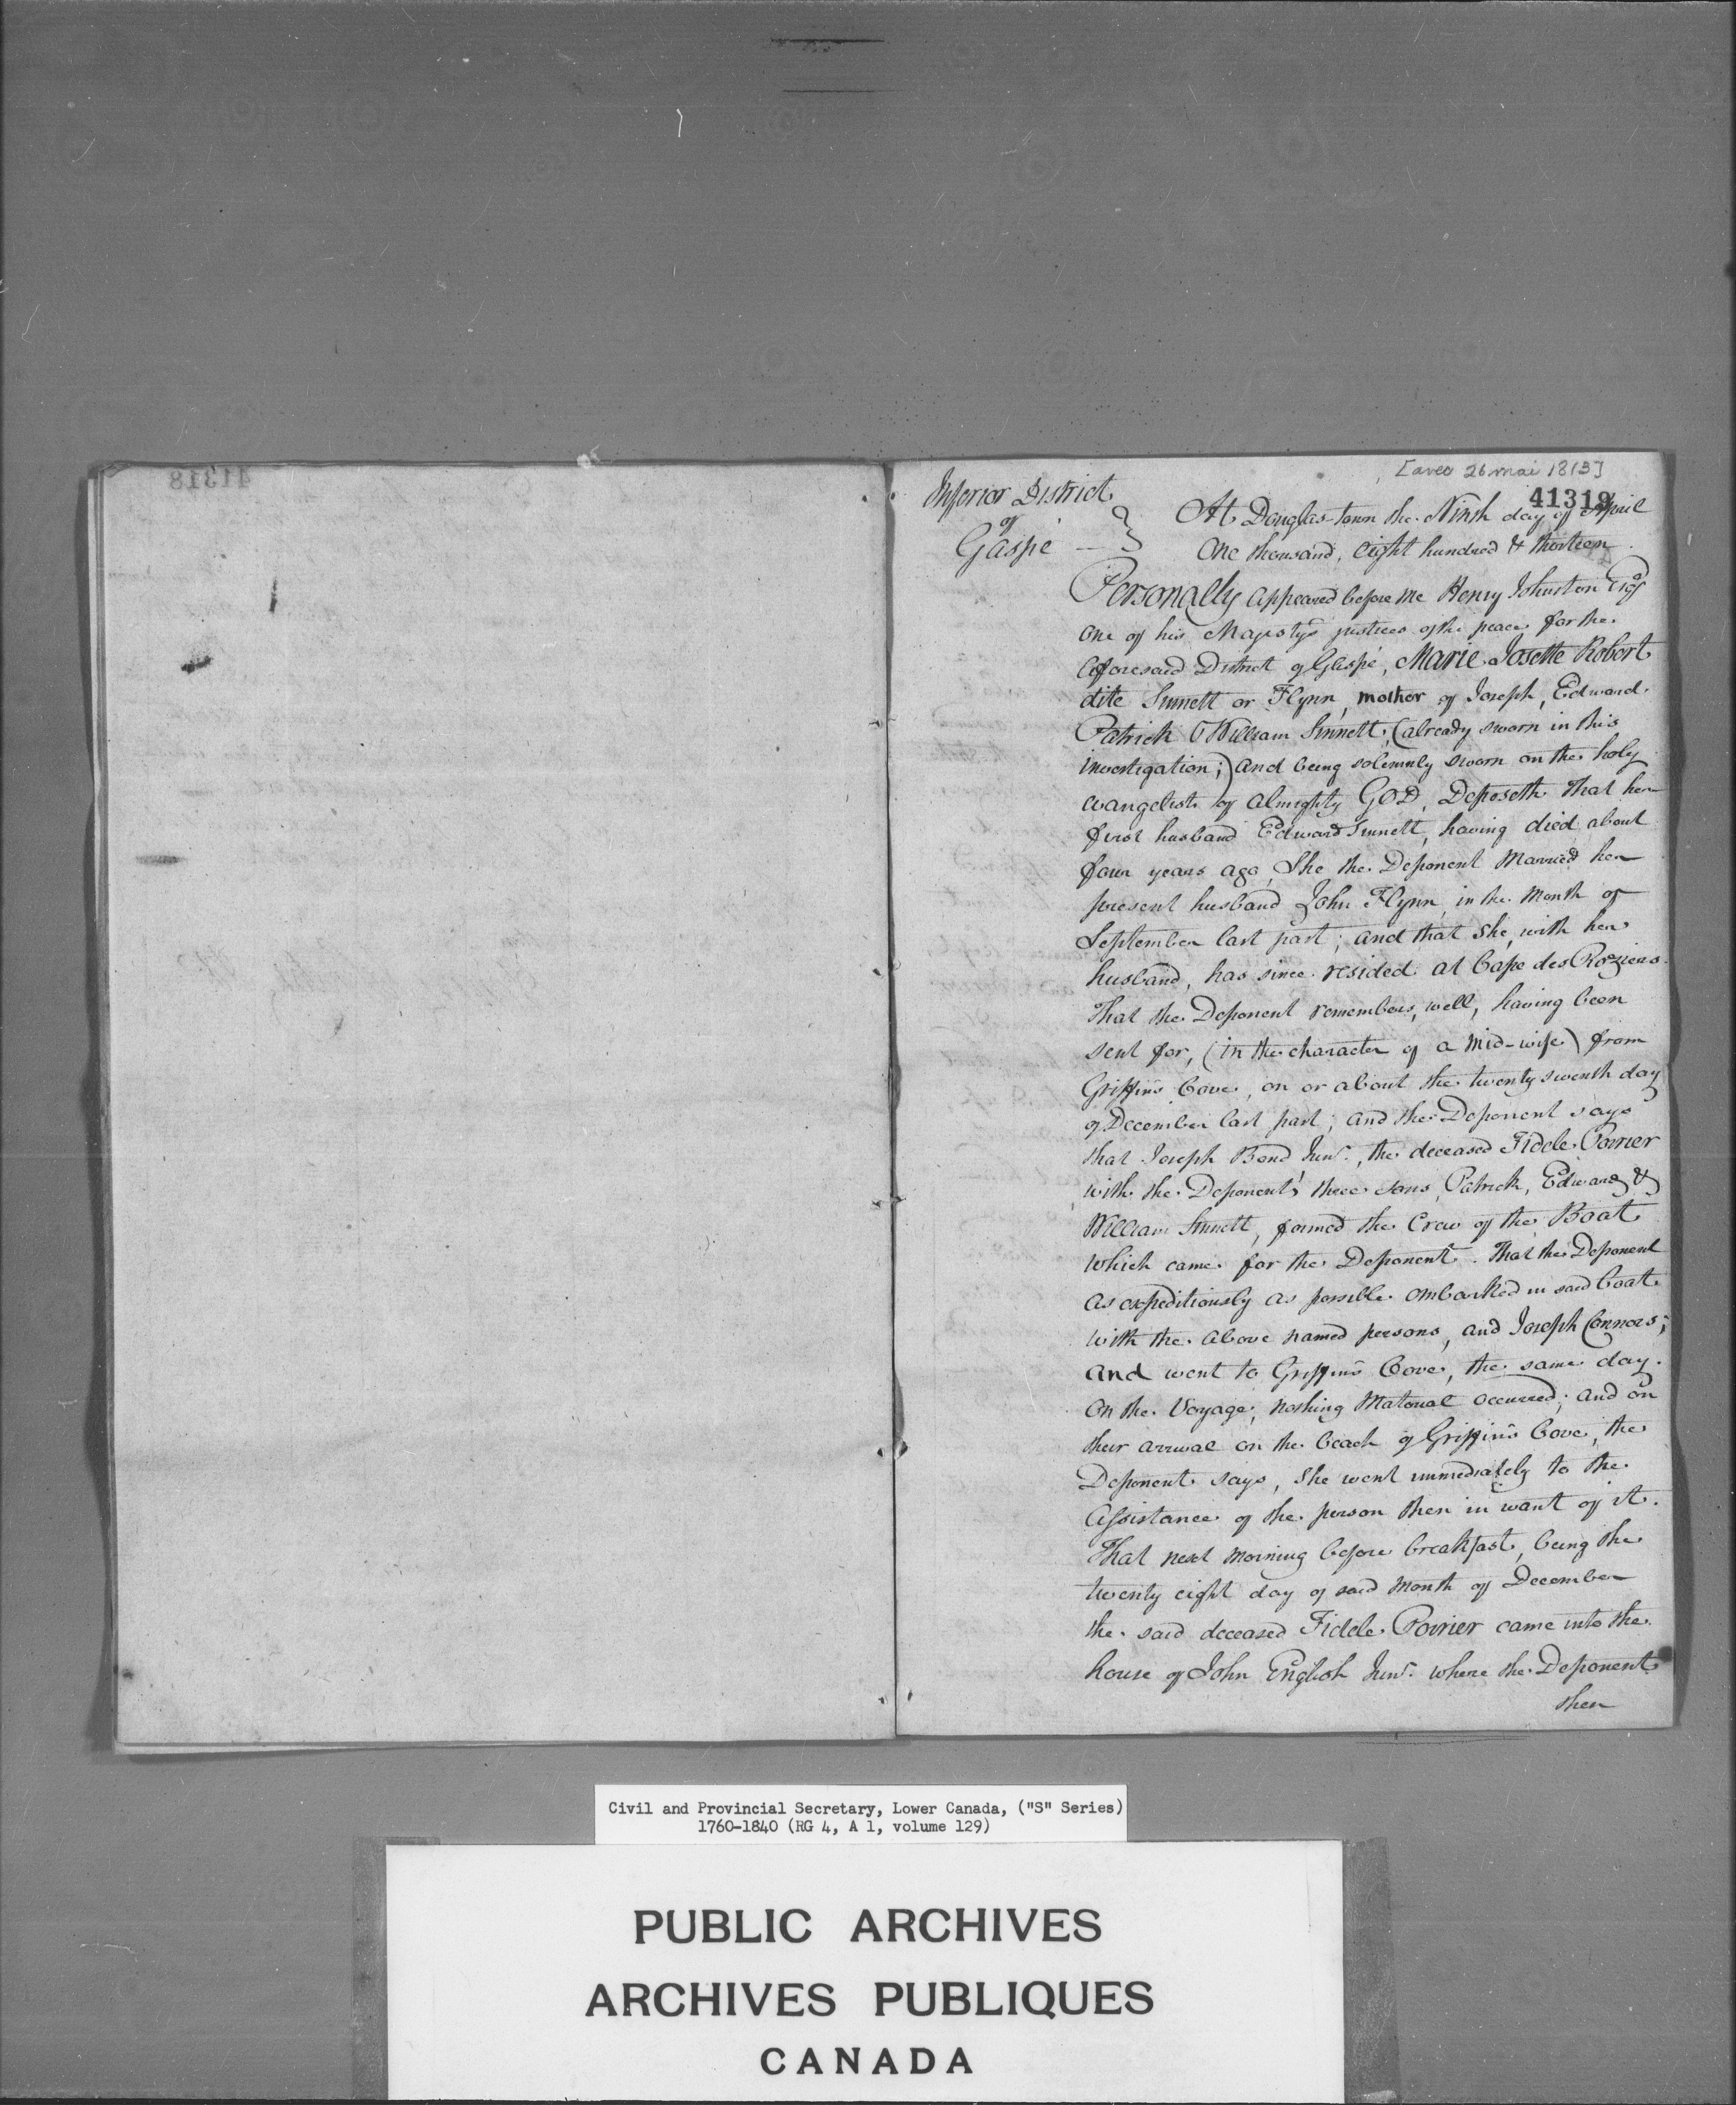 41318
[avec 26 mai 1813]
41319
Inferior District
of
Gaspé
At Douglas-town the Ninth day of April
One thousand, eight hundred & thirteen
Personally appeared before me Henry Johnston Esqr
one of his Majesty's justices of the peace for the
aforesaid District of Gaspé, Marie Josette Robert
dite Sinnett or Flynn, mother of Joseph, Edward
Patrick & William Sinnett, (already sworn in this
investigation;) and being solemnly sworn on the holy
evangelists of Almighty GOD, Deposeth That her
first husband Edward Sinnett, having died about
four years ago, She the Deponent Married her
present husband John Flynn, in the Month of
September last past; and that She, with her
husband, has since resided at Cape des Roziers.
That the Deponent remembers, well, having been
sent for, (in the character of a Mid-wife) from
Griffin's Cove, on or about the twenty seventh day
of December last past; and the Deponent says
that Joseph Bond Junr., the deceased Fidele Poirier
with the Deponent's three sons, Patrick, Edward, &
William Sinnett, formed the Crew of the Boat
which came for the Deponent. That the Deponent
as expeditiously as possible embarked in said boat
with the above named persons, and Joseph Connors;
and went to Griffin's Cove, the same day.
On the Voyage, nothing Material occurred; and on
their arrival on the beach of Griffin's Cove, the
Deponent says, She went immediately to the
Assistance of the person then in want of it.
That next morning before breakfast, being the
twenty eight day of said Month of December
the said deceased Fidele Poirier came into the
house of John English Junr. where the Deponent
then
Civil and Provincial Secretary, Lower Canada, ("S" Series)
1760-1840 (RG 4, A 1, volume 129)
PUBLIC ARCHIVES
ARCHIVES PUBLIQUES
CANADA